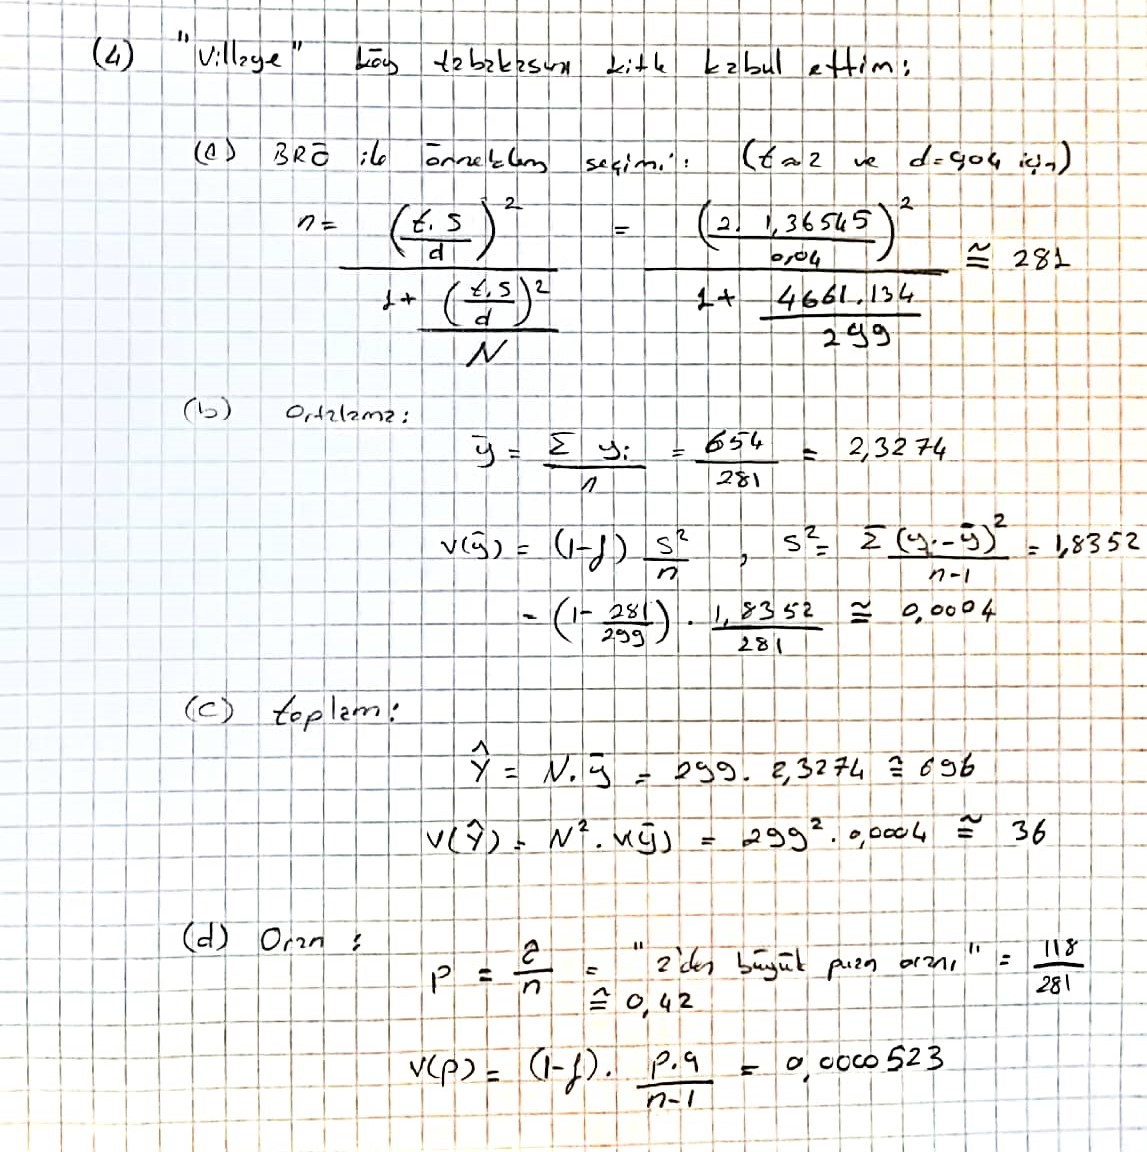 (4) "Village" köy tabakasını kitle kabul ettim:
(a) BRÖ ile örneklem seçimi: (t≈2 ve d=0,04 için)
n = (t.s/d)² / (1 + (t.s/d)²/N) = (2. 1,36545/0,04)² / (1 + 4661.134/299) ≅ 281
(b) Ortalama:
ȳ = Σ yi / n = 654/281 = 2,3274
v(ȳ) = (1-f) s²/n , s² = Σ (yi-ȳ)² / n-1 = 1,8352
= (1- 281/299) . 1,8352/281 ≅ 0,0004
(c) toplam:
Ŷ = N.ȳ = 299. 2,3274 ≅ 696
v(Ŷ) = N². v(ȳ) = 299². 0,0004 ≅ 36
(d) Oran :
p = a/n = "2'den büyük puan oranı" = 118/281
≅ 0,42
v(p) = (1-f). p.q/n-1 = 0,0000523